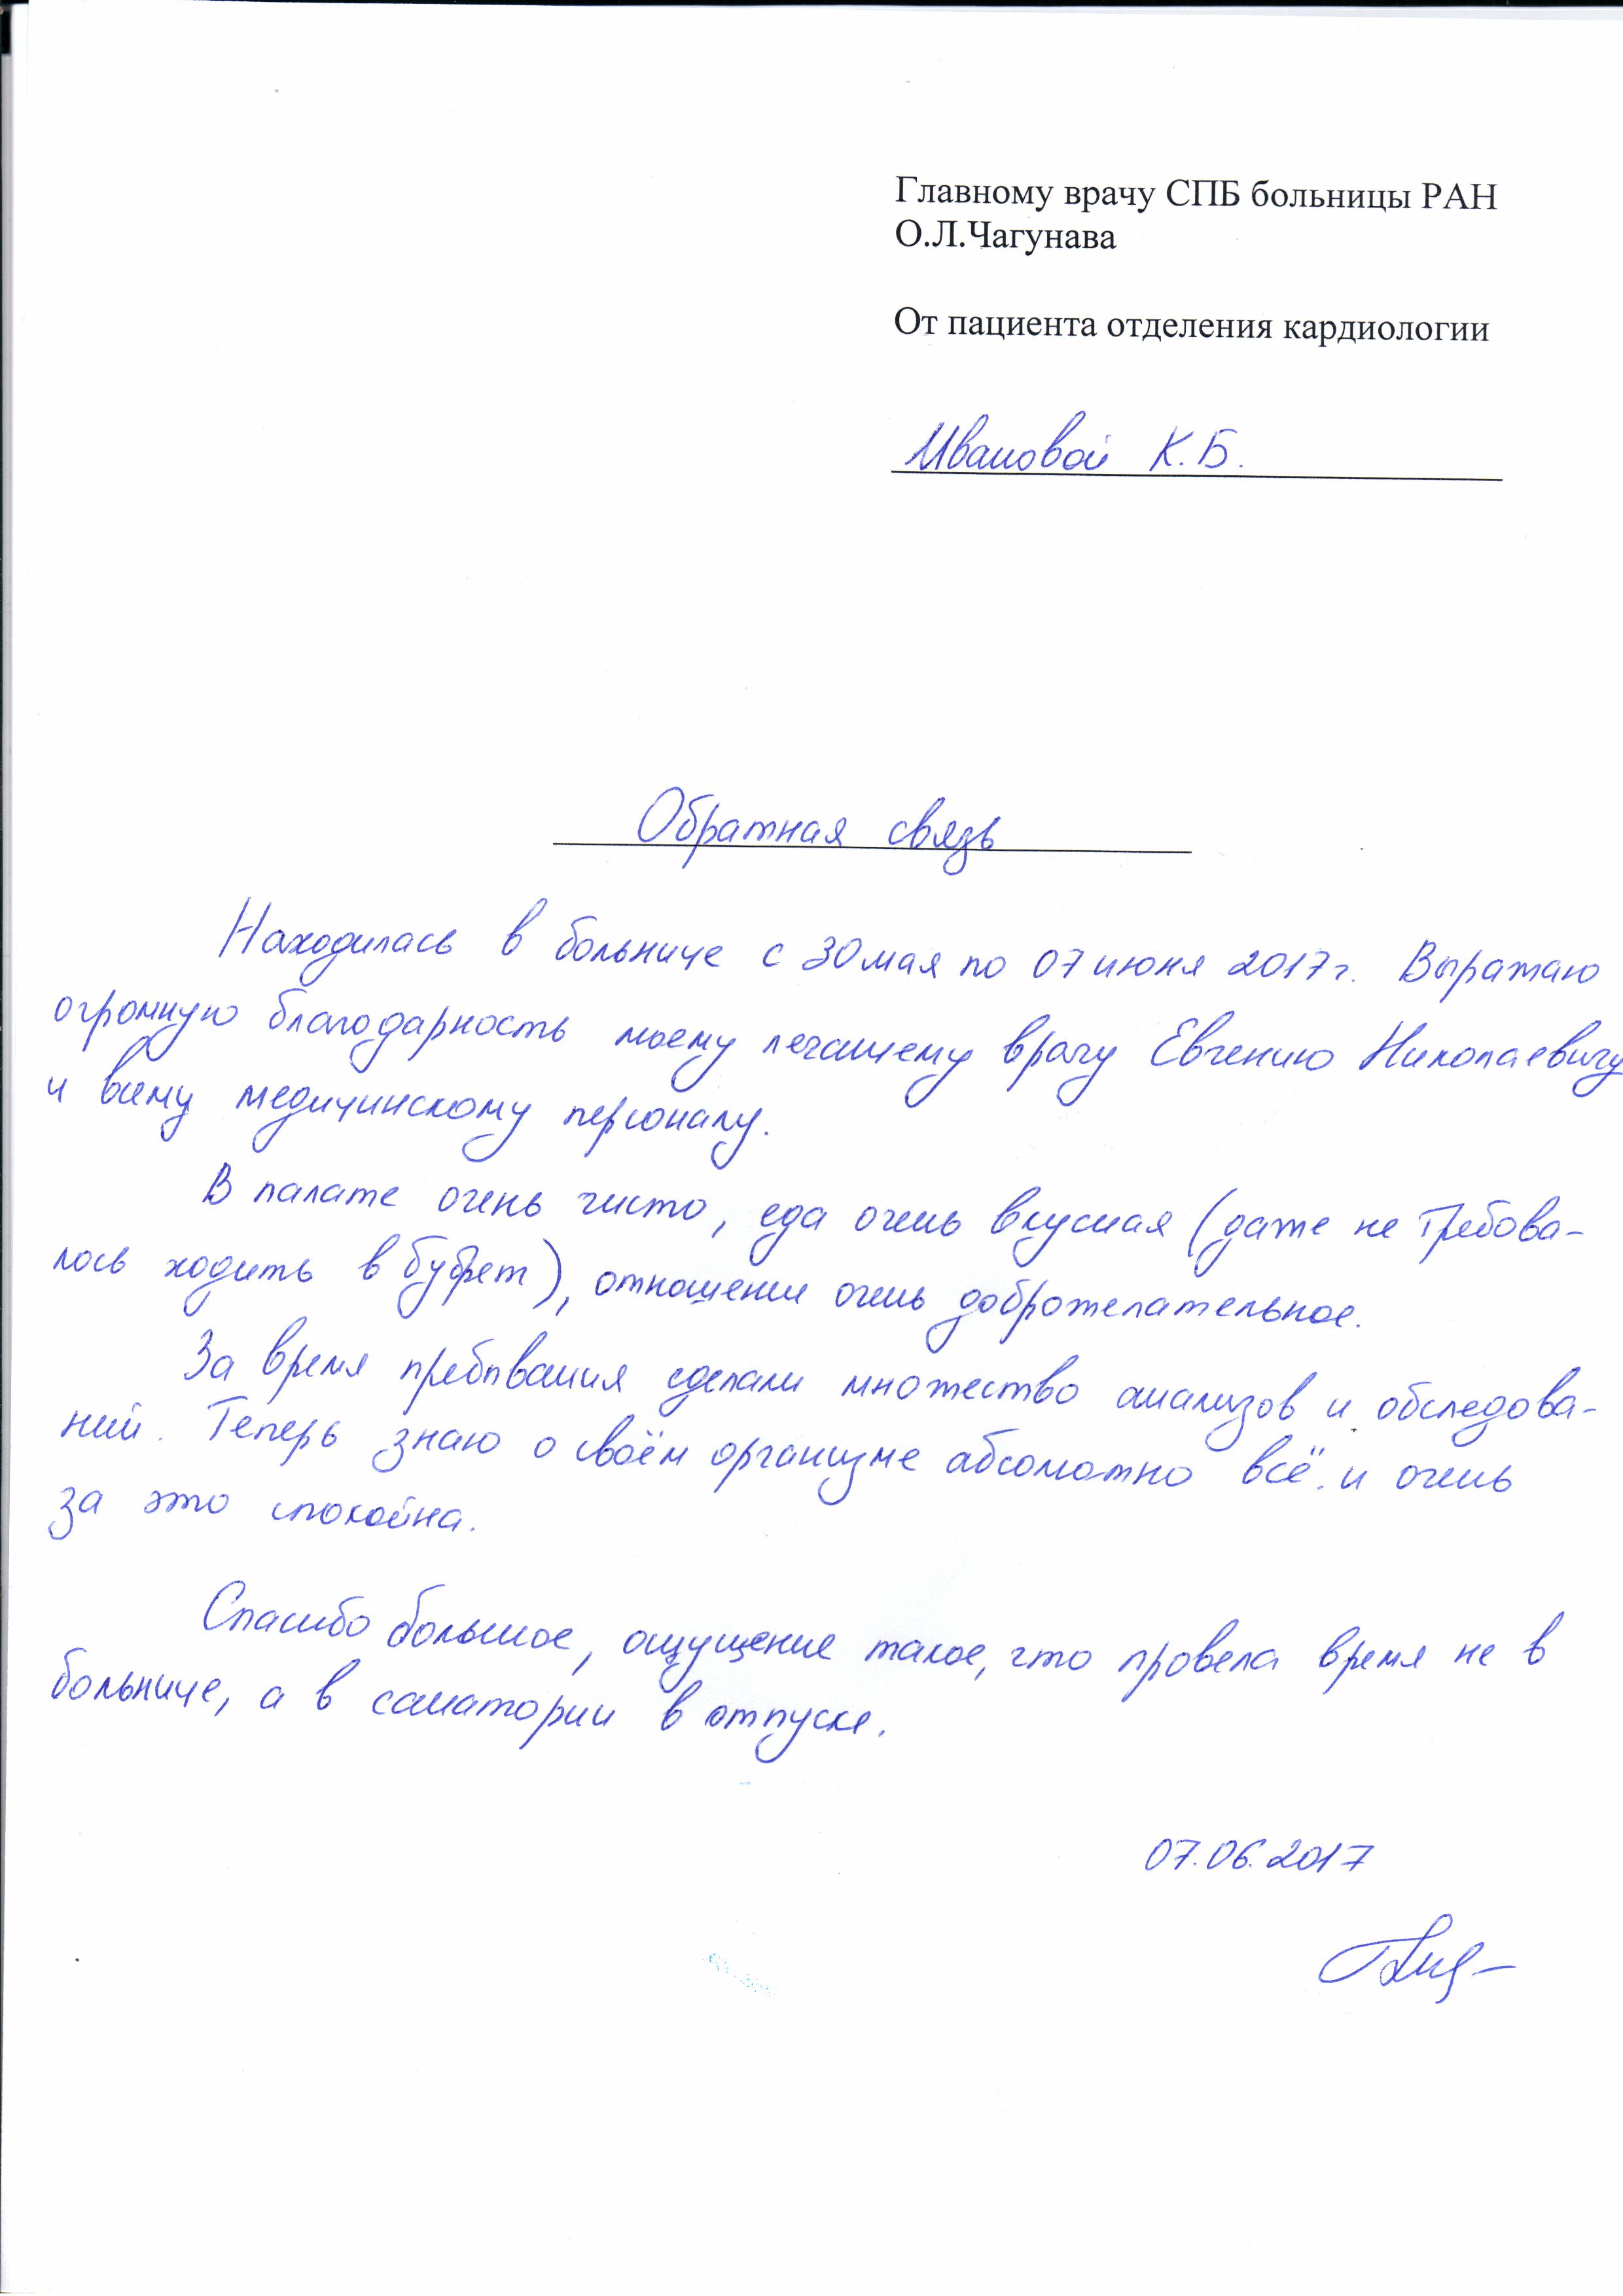 Главному врачу СПБ больницы РАН
О.Л.Чагунава
От пациента отделения кардиологии
Ивановой К.Б.
Обратная связь
Находилась в больнице с 30 мая по 07 июня 2017г. Выражаю
огромную благодарность моему лечащему врачу Евгению Николаевичу
и всему медицинскому персоналу.
В палате очень чисто, еда очень вкусная (даже не требова-
лось ходить в буфет), отношение очень доброжелательное.
За время пребывания сделали множество анализов и обследова-
ний. Теперь знаю о своём организме абсолютно всё. и очень
за это спокойна.
Спасибо большое, ощущение такое, что провела время не в
больнице, а в санатории в отпуске.
07.06.2017